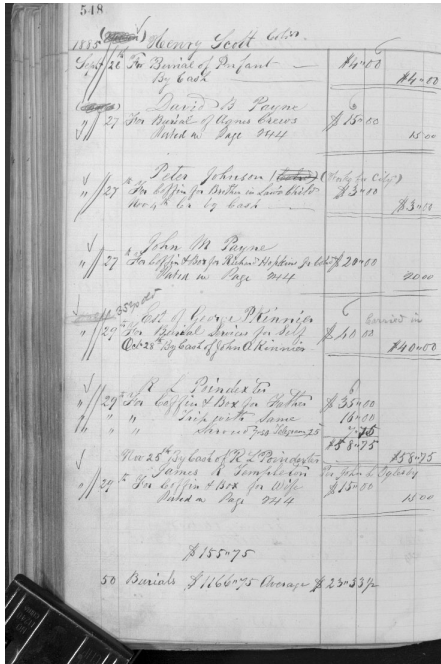 548
1885 Henry Scott Col.
Sept 26th For Burial of Infant $4.00
By Cash $4.00
David B Payne
" 27 For Burial of Agnes Crews $15.00
Page 244 15.00
Peter Johnson
" 27th For Coffin for Brother in Law's Child $3.00
Nov 4th By Cash $3.00
John M Payne
" 27th For Coffin & Box for Richard Hopkins $20.00
Page 244 20.00
Est. of George P. Kinnier
" 29th For Burial Services for Self $40.00
Oct 28th By Cash of John A. Kinnier $40.00
R L Poindexter
" 29th For Coffin & Box for Father $35.00
" " " Trip with Same
" " " Telegram 25
$58.75
Nov 25th By Cash of R L Poindexter $58.75
James R Templeton
" 29th For Coffin & Box for Wife $15.00
Page 244 15.00
$155.75
50 Burials $1166.75 Average $23.33½